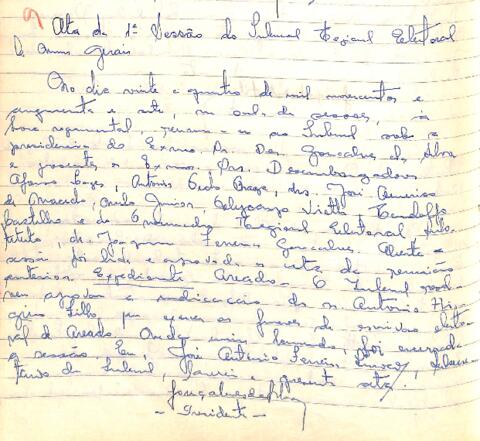 Ata da 1ª Sessão do Tribunal Regional Eleitoral
de Minas Gerais
No dia vinte e quatro de mil novecentos e
cinquenta e sete, na sala de sessões, à
hora regimental, reuniu-se o Tribunal sob a
presidência do Exmo. Sr. Des. Gonçalves da Silva
e presentes os Exmos. Srs. Desembargadores
Afonso Lages, Antonio Pedro Braga, drs. José Americo
de Macedo, Onofre Junior,
e do Procurador Regional Eleitoral subs
tituto, dr. Joaquim Ferreira Gonçalves. Aberta a
sessão foi lida e aprovada a ata da reunião
anterior. Expediente Areado - O Tribunal
aprovar a indicação do sr. Antonio
Filho, para exercer as funções de escrivão eleito-
ral de Areado. Nada mais havendo, foi encerrada
a sessão. Eu, José Antonio Ferreira
tario do Tribunal, lavrei a presente ata.
Gonçalves da Silva
- Presidente -